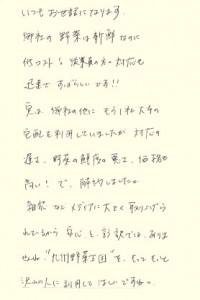 いつもお世話になります。
御社の野菜は新鮮なのに
低コスト!従業員の方の対応も
迅速ですばらしいです!!
実は御社の他にもう1社大手の
宅配を利用していましたが対応の
遅さ、野菜の鮮度の悪さ、価格も
高い!で、解約しました。
雑誌などメディアに大きく取り上げら
れているから安心と、言う訳では、ありま
せんね。"九州野菜王国"を、もっともっと
沢山の人に利用してほしいですね。